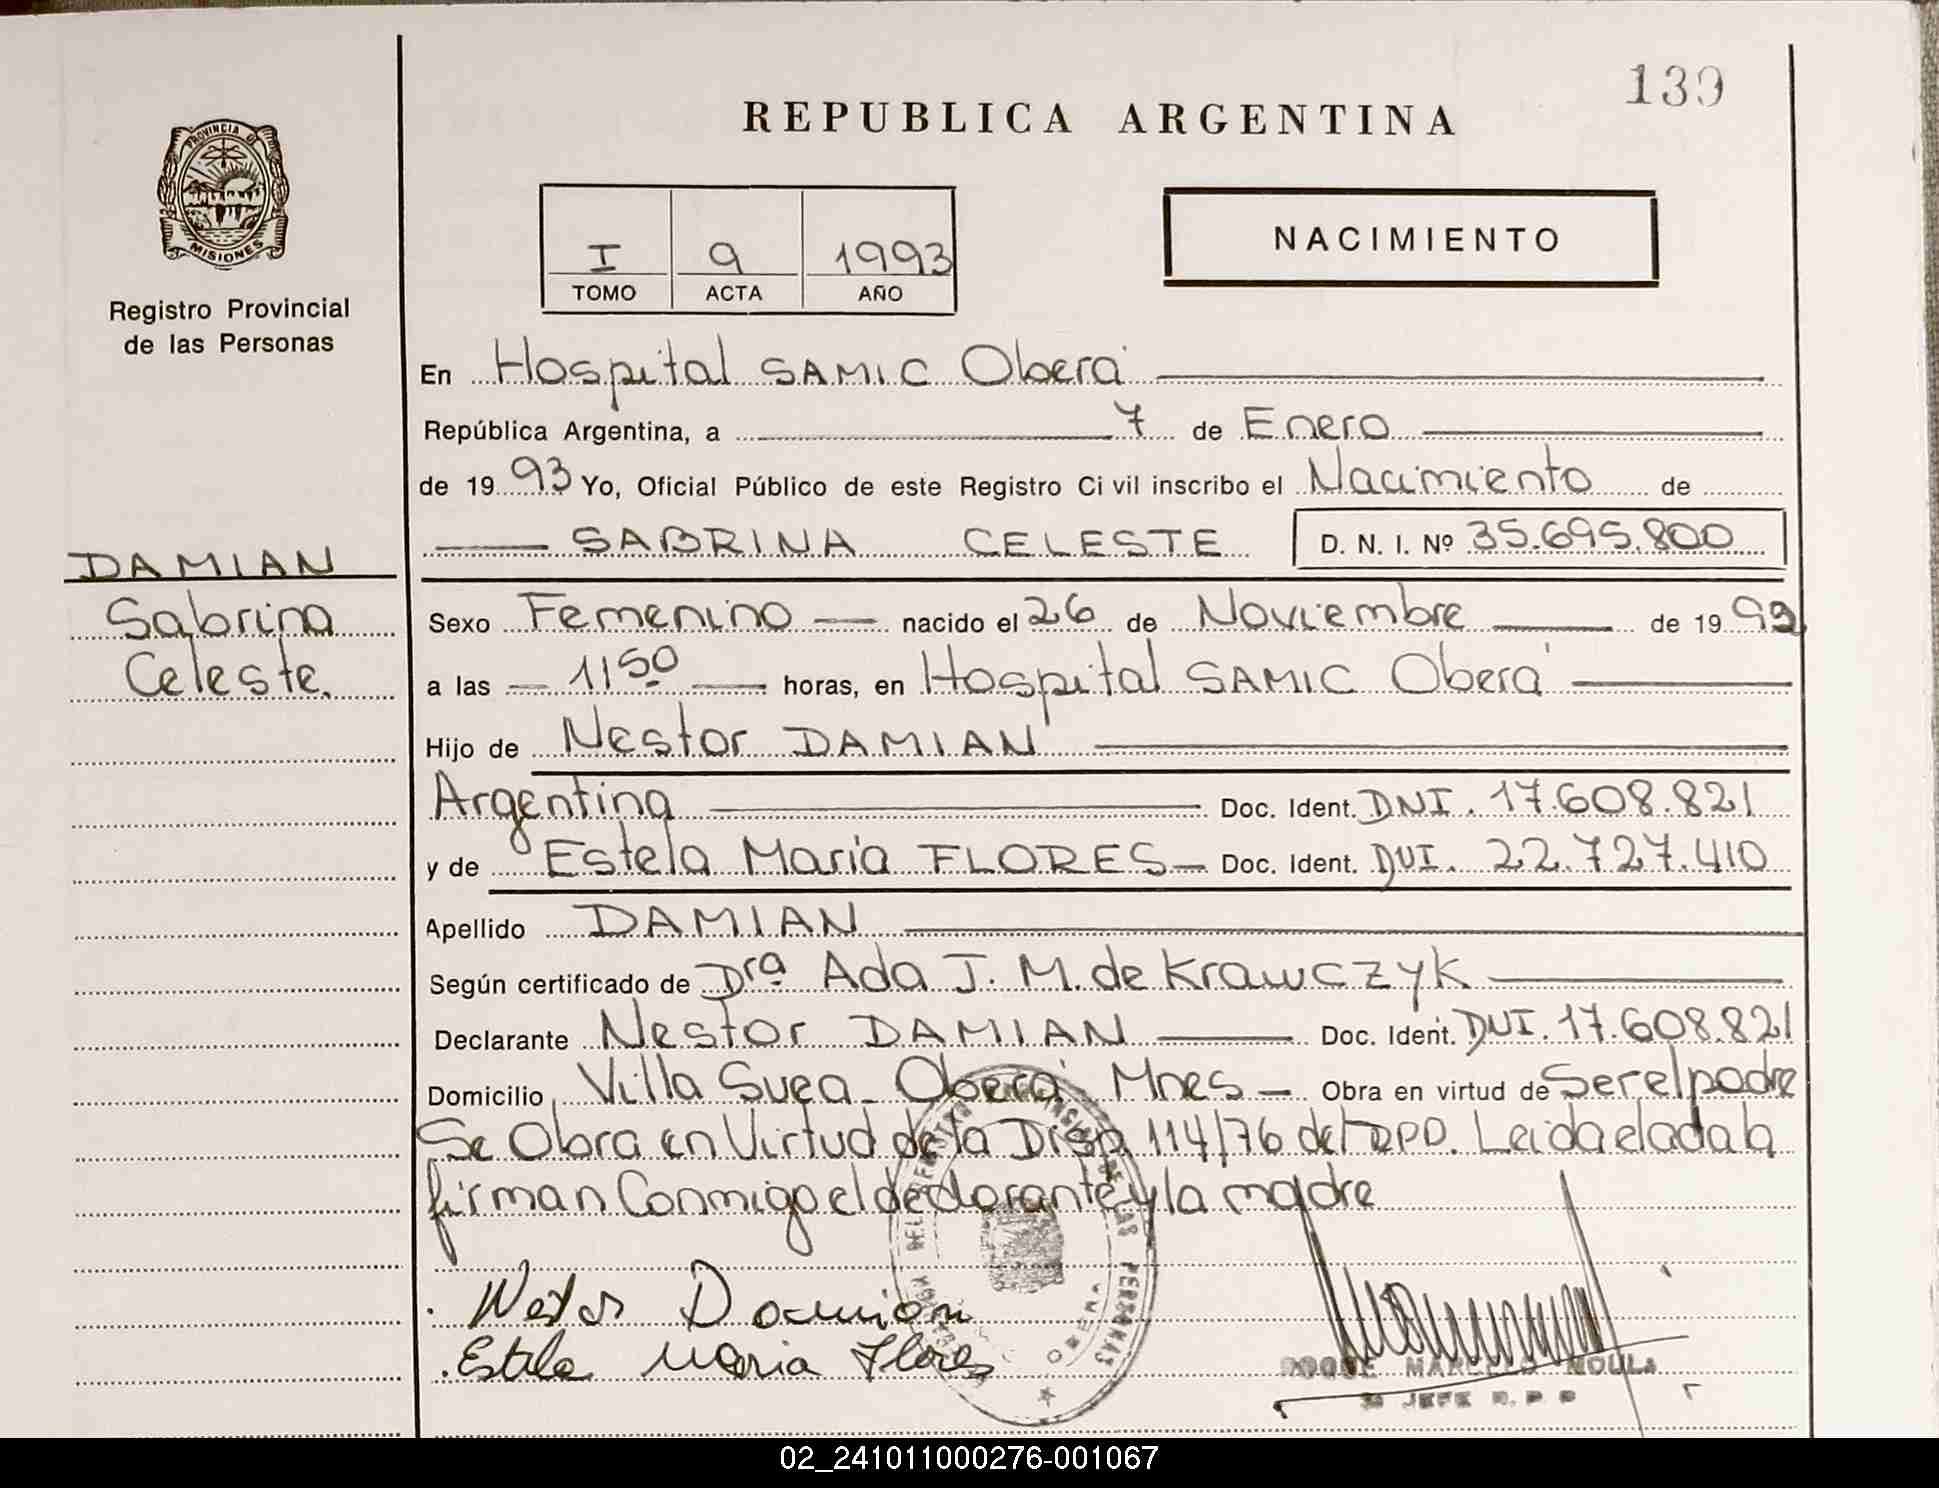 139
REPUBLICA ARGENTINA
PROVINCIA DE
MISIONES
Registro Provincial
de las Personas
I 9 1993
TOMO ACTA AÑO
NACIMIENTO
En Hospital SAMIC Oberá
República Argentina, a 7 de Enero
de 1993 Yo, Oficial Público de este Registro Civil inscribo el Nacimiento de
SABRINA CELESTE D. N. I. Nº 35.695.800
DAMIAN
Sabrina
Celeste.
Sexo Femenino nacido el 26 de Noviembre de 1992
a las 11 50 horas, en Hospital SAMIC Oberá
Hijo de Nestor DAMIAN
Argentina Doc. Ident. DNI. 17.608.821
y de Estela Maria FLORES Doc. Ident. DNI. 22.727.410
Apellido DAMIAN
Según certificado de Dra Ada J. M. de Krawczyk
Declarante Nestor DAMIAN Doc. Ident. DNI. 17.608.821
Domicilio Villa Svea Oberá Mnes Obra en virtud de Ser el padre
Se Obra en Virtud de la Disp. 114/76 del RPP. Leida el acta la
firman Conmigo el declarante y la madre
Nestor Damian
Estela Maria Flores
ROQUE MARCELO
JEFE R. P. P
OBERA
02_241011000276-001067